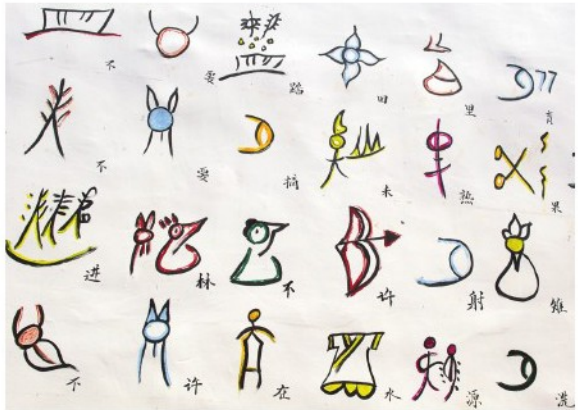 不 要 踏 田 里 青
不 要 摘 未 熟 果
进 林 不 许 射 雉
不 许 在 水 源 洗